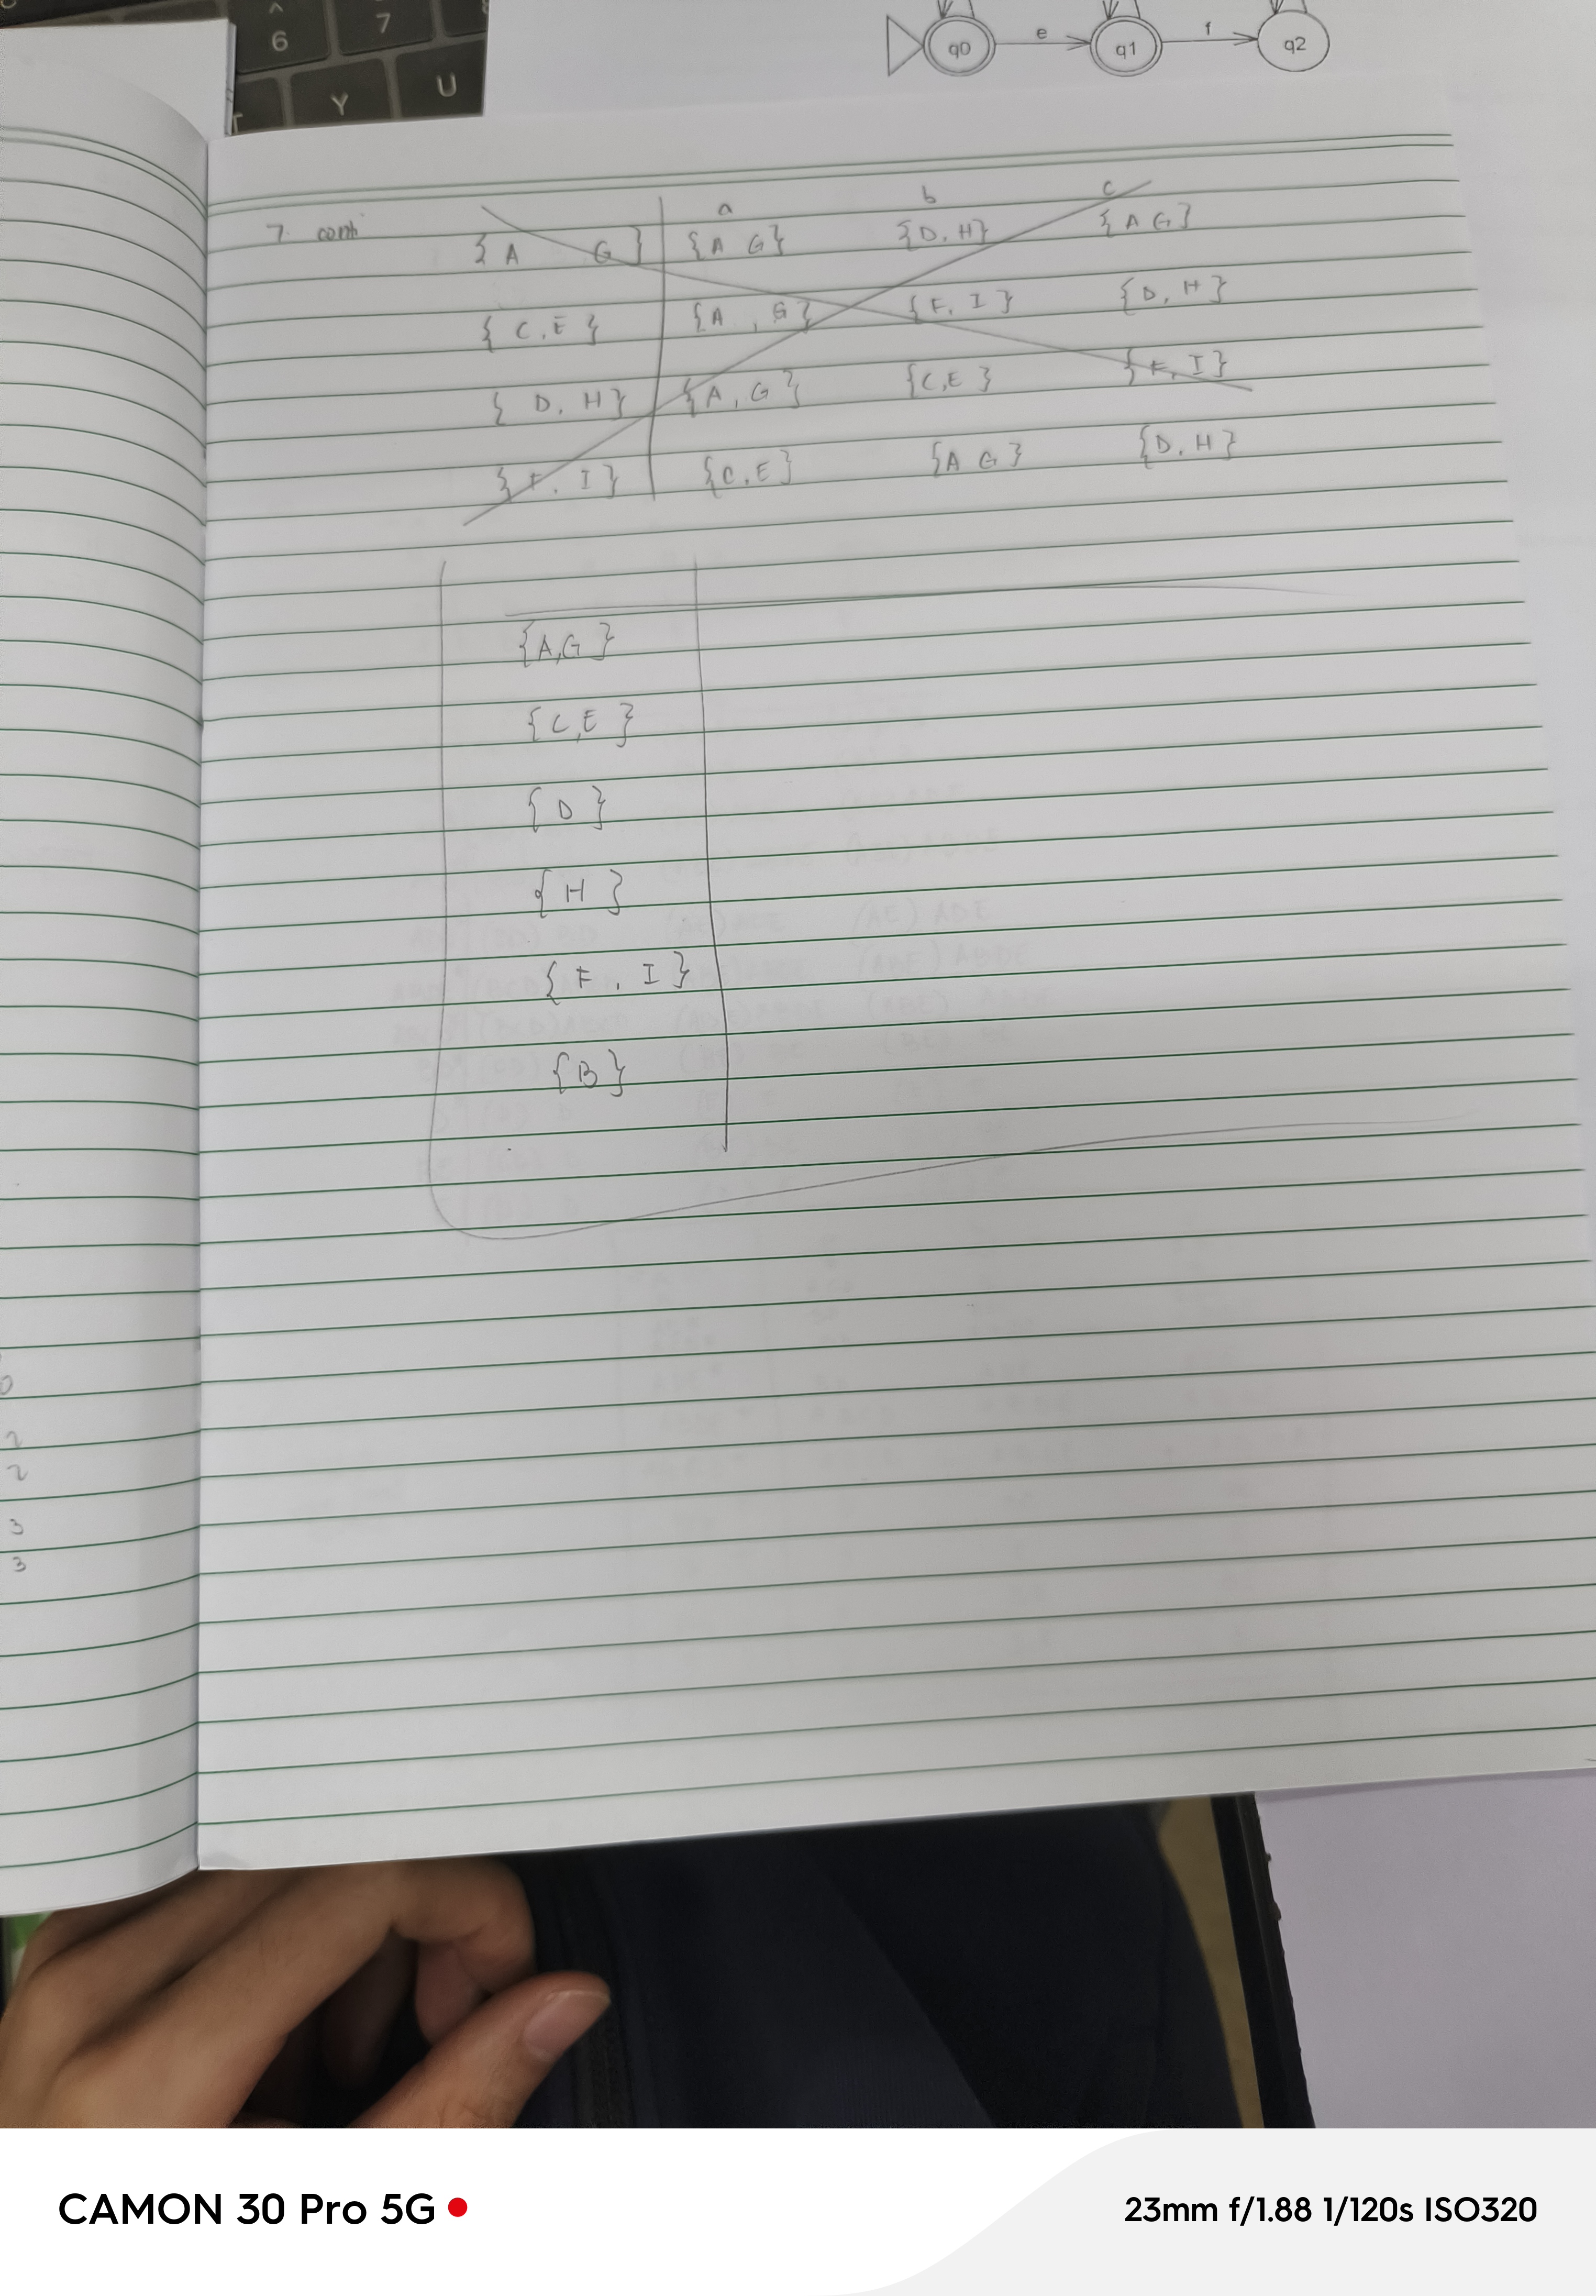 6 7
Y U
q0 e q1 f q2
7. cont
a b c
{ A G } {A G} {D, H} {A G}
{ C, E } {A , G} {F, I } {D, H}
{ D, H} {A, G } {C,E } {F, I}
{F, I } {C, E} {A G } {D, H}
{A,G }
{C,E }
{ D }
{ H }
{ F, I }
{B}
0
2
2
3
3
CAMON 30 Pro 5G 23mm f/1.88 1/120s ISO320